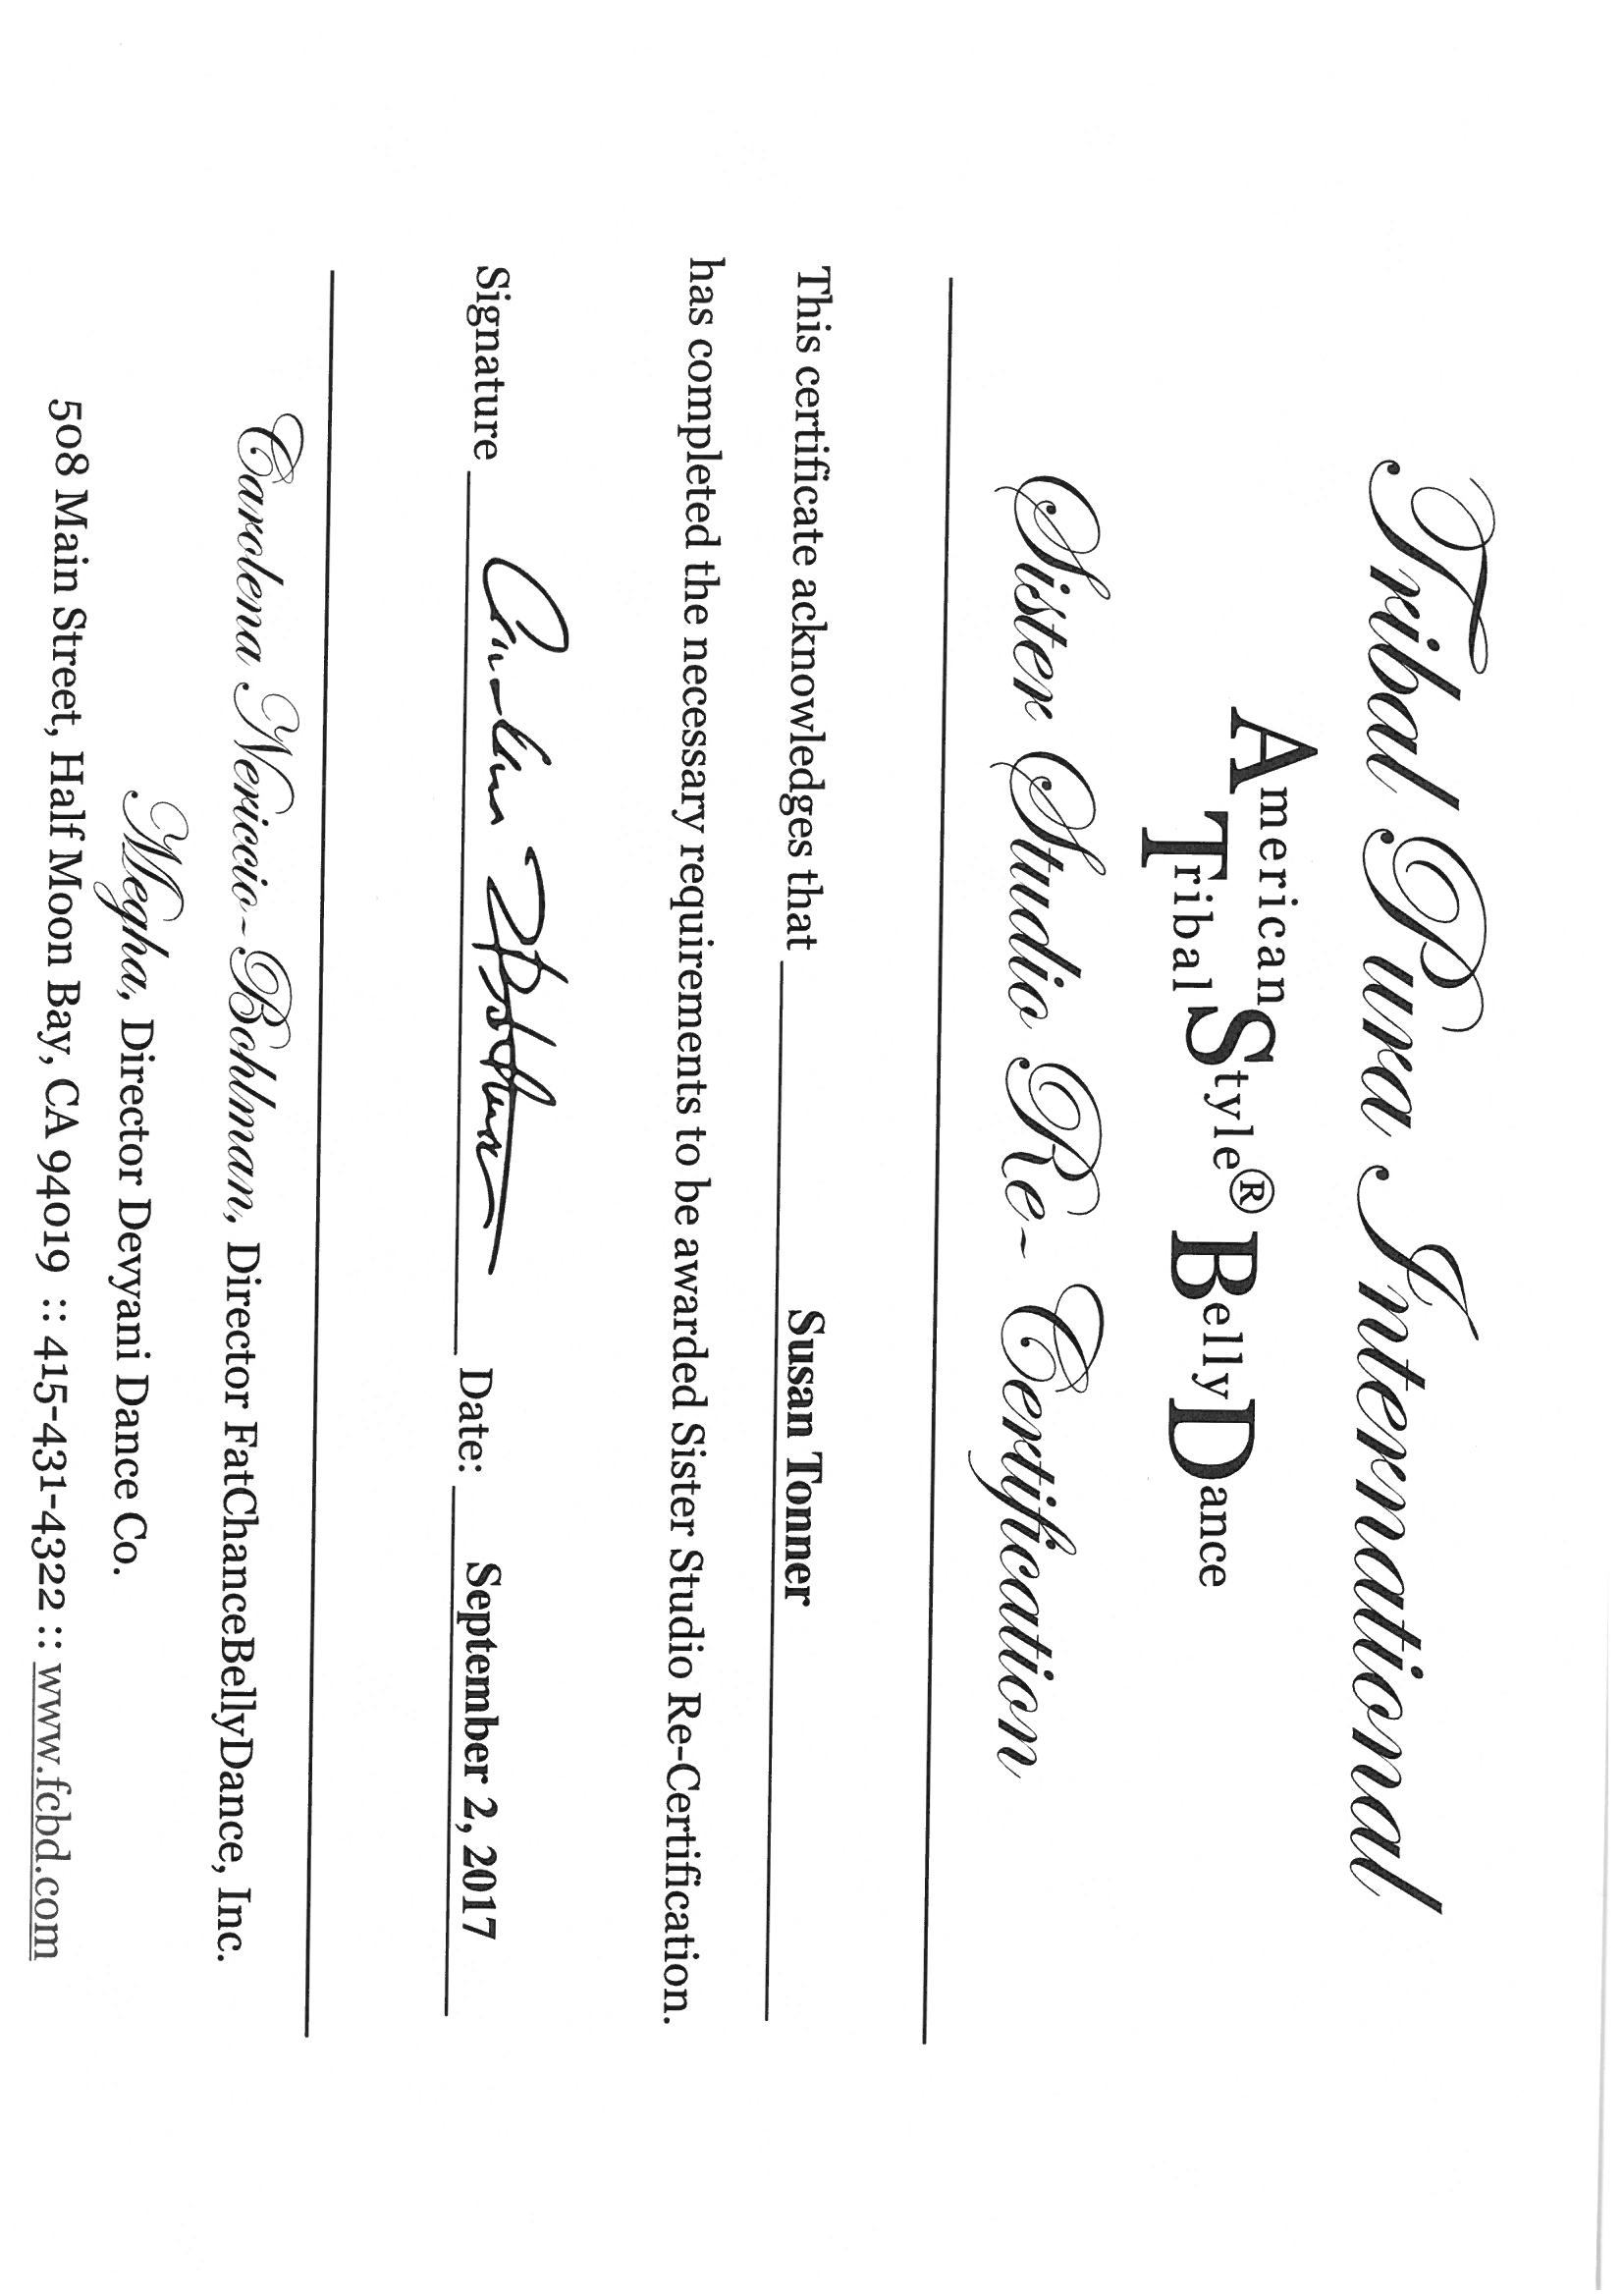 Tribal Pura International
American Tribal Style® Belly Dance
Sister Studio Re-Certification
This certificate acknowledges that Susan Tonner
has completed the necessary requirements to be awarded Sister Studio Re-Certification.
Signature Date: September 2, 2017
Carolena Nericcio-Bohlman, Director FatChanceBellyDance, Inc.
Megha, Director Devyani Dance Co.
508 Main Street, Half Moon Bay, CA 94019 :: 415-431-4322 :: www.fcbd.com